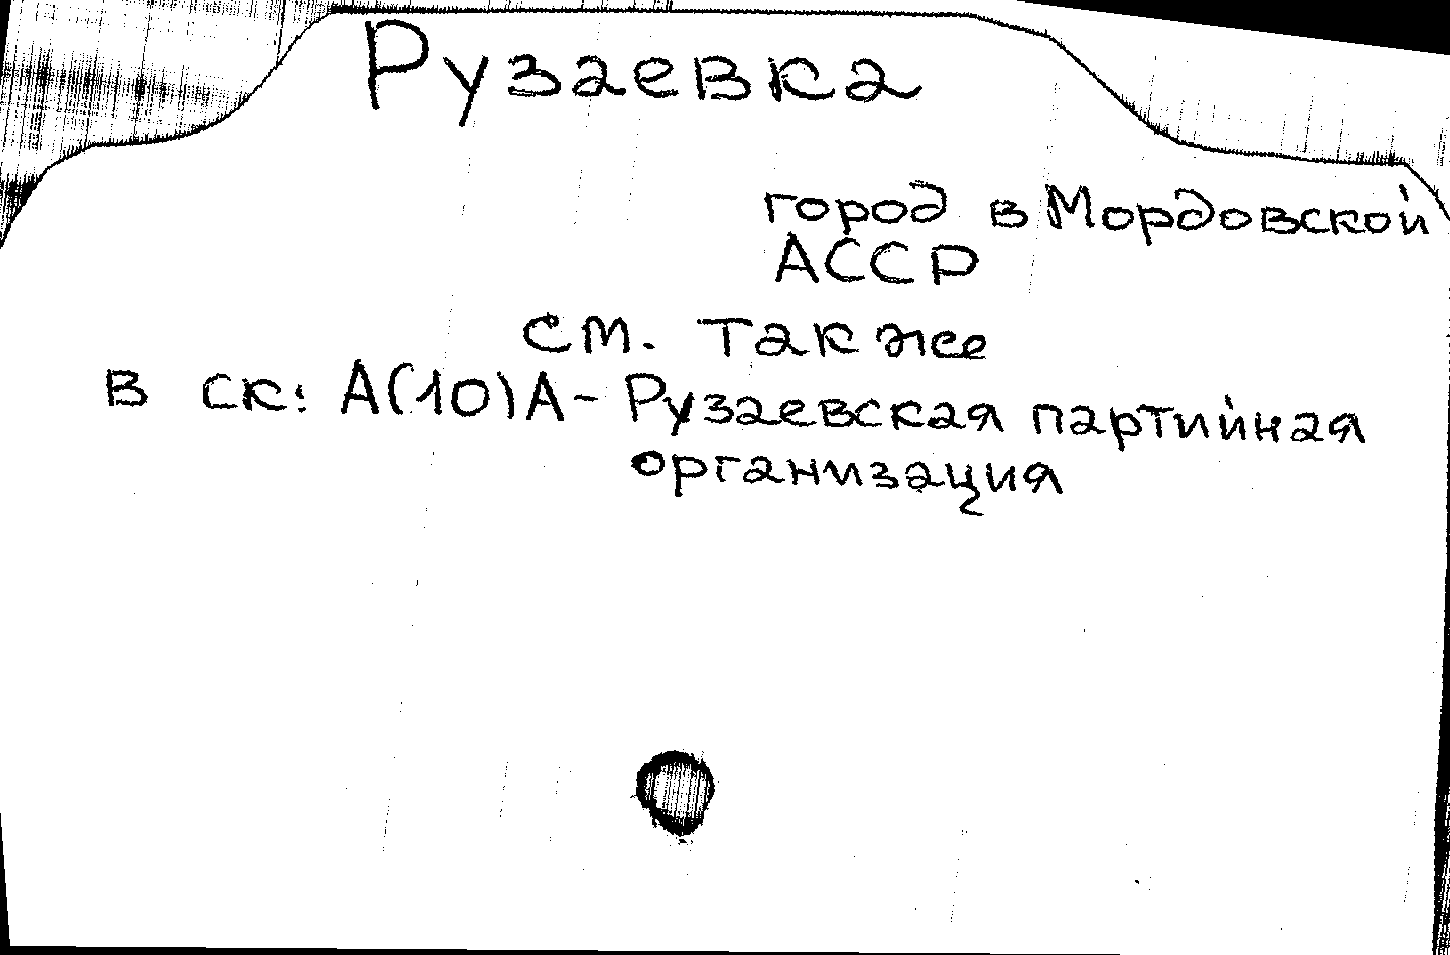 Рузаевка
город в Мордовской
АССР
см. также
в ск: А(10)А - Рузаевская партийная
организация